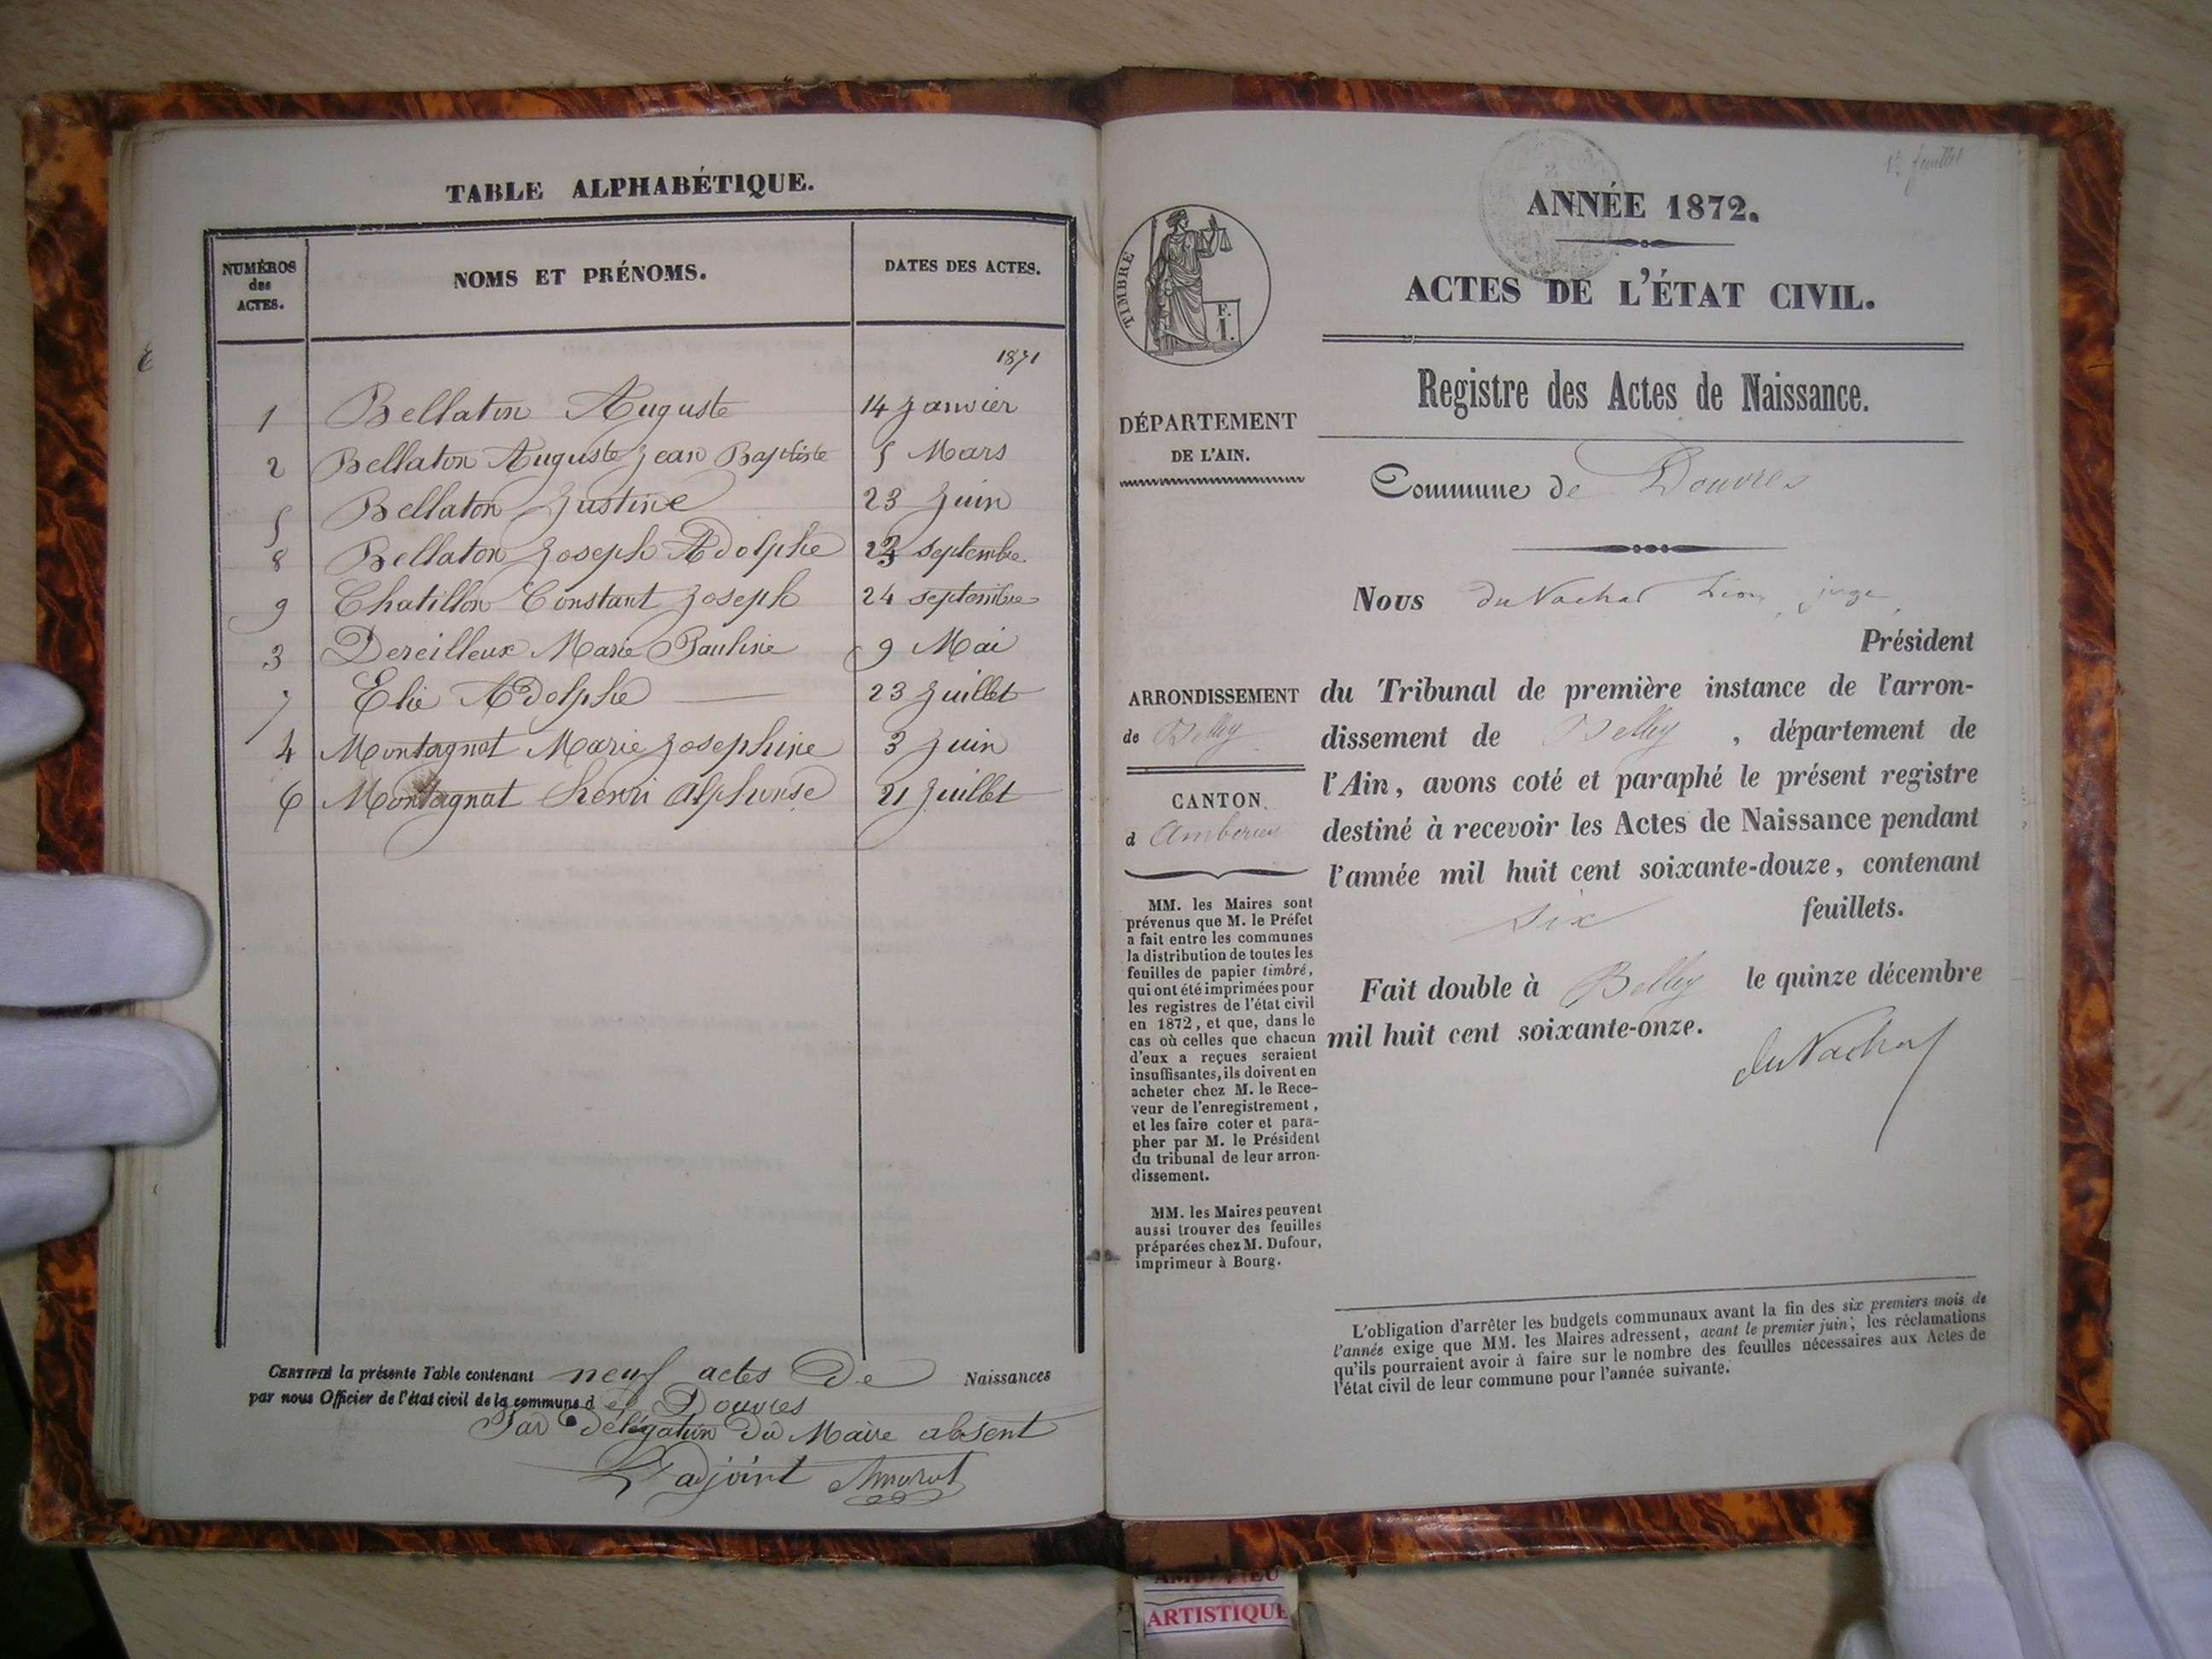 TABLE ALPHABÉTIQUE.
NUMÉROS des ACTES. NOMS ET PRÉNOMS. DATES DES ACTES.
1871
1 Bellaton Auguste 14 Janvier
2 Bellaton Auguste Jean Baptiste 5 Mars
5 Bellaton Justine 23 Juin
8 Bellaton Joseph Adolphe 23 septembre
9 Chatillon Constant Joseph 24 septembre
3 Dereilleux Marie Pauline 9 Mai
7 Elie Adolphe 23 Juillet
4 Montagnat Marie Josephine 3 Juin
6 Montagnat henri Alphonse 21 Juillet
CERTIFIÉ la présente Table contenant neuf actes De Naissances
par nous Officier de l'état civil de la commune d e Douvres
Par délégation du Maire absent
L'adjoint
1er feuillet
ANNÉE 1872.
ACTES DE L'ÉTAT CIVIL.
Registre des Actes de Naissance.
TIMBRE
F.
1.
DÉPARTEMENT
DE L'AIN.
ARRONDISSEMENT
de Belley
CANTON
d Amberieu
MM. les Maires sont
prévenus que M. le Préfet
a fait entre les communes
la distribution de toutes les
feuilles de papier timbré,
qui ont été imprimées pour
les registres de l'état civil
en 1872, et que, dans le
cas où celles que chacun
d'eux a reçues seraient
insuffisantes, ils doivent en
acheter chez M. le Rece-
veur de l'enregistrement,
et les faire coter et para-
pher par M. le Président
du tribunal de leur arron-
dissement.
MM. les Maires peuvent
aussi trouver des feuilles
préparées chez M. Dufour,
imprimeur à Bourg.
Commune de Douvres
Nous du Nachat Léon, juge,
Président
du Tribunal de première instance de l'arron-
dissement de Belley, département de
l'Ain, avons coté et paraphé le présent registre
destiné à recevoir les Actes de Naissance pendant
l'année mil huit cent soixante-douze, contenant
six feuillets.
Fait double à Belley le quinze décembre
mil huit cent soixante-onze.
du Nachat
L'obligation d'arrêter les budgets communaux avant la fin des six premiers mois de
l'année exige que MM. les Maires adressent, avant le premier juin, les réclamations
qu'ils pourraient avoir à faire sur le nombre des feuilles nécessaires aux Actes de
l'état civil de leur commune pour l'année suivante.
ARTISTIQUE